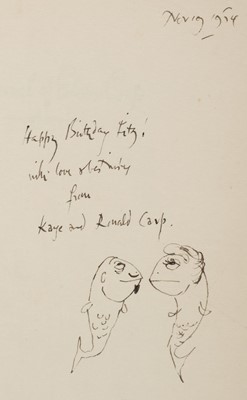 Nov 19 1954
Happy Birthday Fitz!
with love & best wishes
from
Kaye and Ronald Carp.